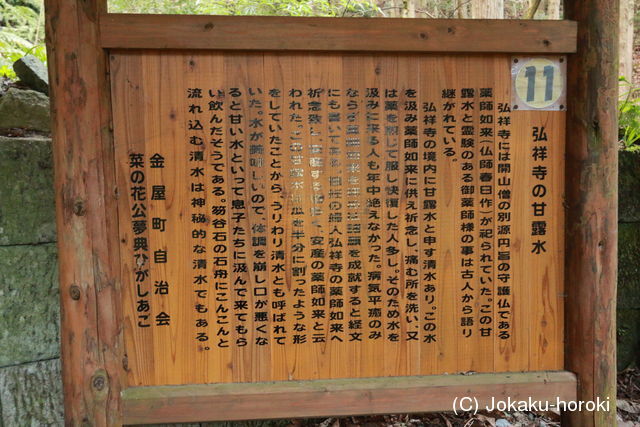 11
弘祥寺の甘露水
弘祥寺には開山僧の別源円旨の守護仏である
薬師如来(仏師春日作)が祀られていた。この甘
露水と霊験のある御薬師様の事は古人から語り
継がれている。
弘祥寺の境内に甘露水と申す清水あり。この水
を汲み薬師如来に供え祈念し、痛む所を洗い、又
は薬を煎じて服し快復した人多し。そのため水を
汲みに来る人も年中絶えなかった。病気平癒のみ
ならず
を成就すると経文
にも書いてあり、
の婦人弘祥寺の薬師如来へ
祈念致し、安産する
安産の薬師如来と云
われた。この甘露水
瓜を半分に割ったような形
をしていたことから、うりわり清水とも呼ばれて
いた。水が美味しいので、体調を崩し口が悪くな
ると甘い水といって息子たちに汲んで来てもら
い飲んだそうである。笏谷石の石舟にこんこんと
流れ込む清水は神秘的な清水でもある。
金屋町自治会
菜の花公夢典ひがしあこ
(C) Jokaku-horoki